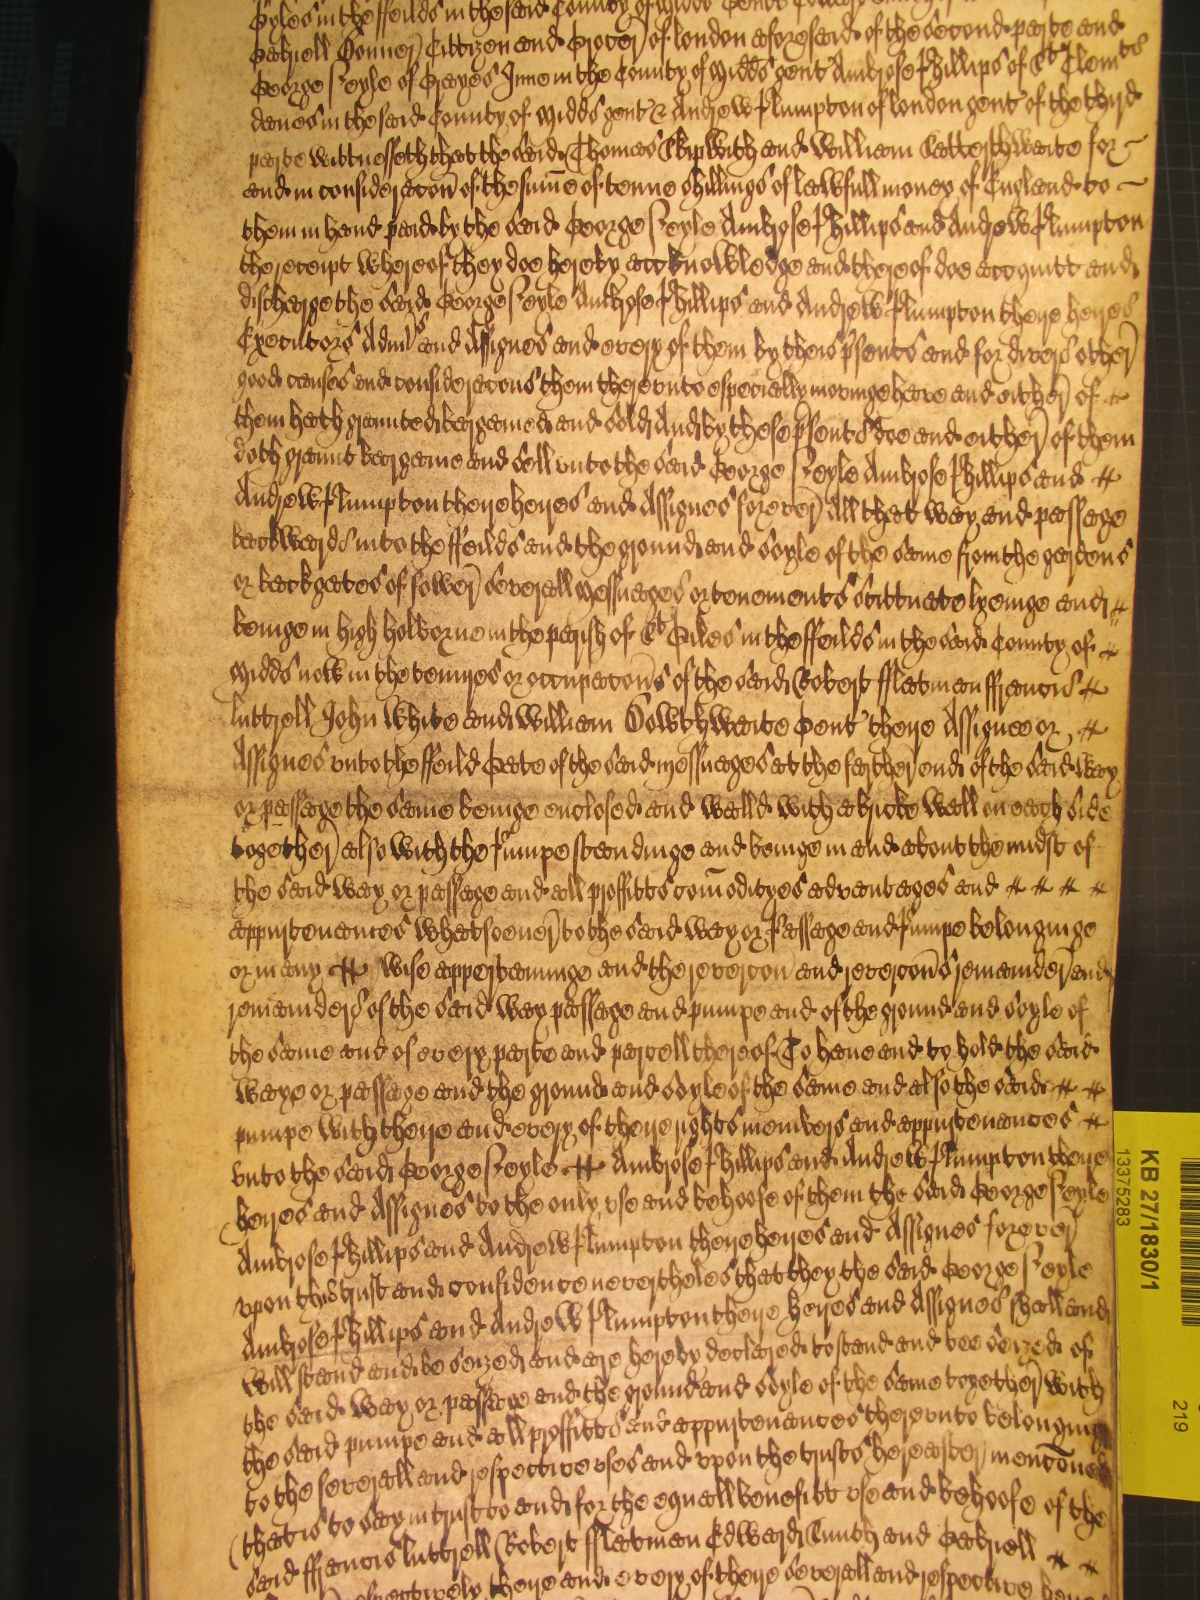 Gyles in the ffeilds in the said County of Midds Gent
Gabriell Conner Cittizen and Grocer of london aforesaid of the second parte and
George Seyle of Grayes Inne in the County of Midds gent Ambrose Phillips of St Clemts
danes in the said County of Midds gent & Andrew Plumpton of london gent of the third
parte wittnesseth that the said Thomas Skipwith and William Satterthwaite for
and in consideracon of the sume of tenne shillings of lawfull money of England to
them in hand paid by the said George Seyle Ambrose Phillips and Andrew Plumpton
the receipt whereof they doe hereby acknowledge and thereof doe acquitt and
discharge the said George Seyle Ambrose Phillips and Andrew Plumpton theire heyres
Executors Admrs and Assignes and every of them by theis psents and for divers other
good causes and consideracons them therevnto especially moveinge have and either of
them hath graunted bargained and sold And by these psents doe and either of them
doth graunt bargaine and sell vnto the said George Seyle Ambrose Phillips and
Andrew Plumpton theire heyres and Assignes forever All that way and passage
backwards into the ffeilds and the ground and soyle of the same from the gardens
or backgates of fower severall Messuages or tenements scittuate lyeinge and
beinge in high holborne in the parish of St Giles in the ffeilds in the said County of
Midds now in the tenures or occupacons of the said Robert fflatman ffrancis
luttrell John White and William Sowthwaite Gent theire Assignee or
Assignes vnto the ffeild Gate of the said messuages at the farther end of the said way
or passage the same beinge enclosed and walld with a bricke wall on each side
together also with the Pumpe standinge and beinge in and about the midst of
the said way or passage and all proffitts comodityes advantages and
appurtenances whatsoever to the said way or Passage and Pumpe belonginge
or in any wise appertaininge and the revercon and revercons remainder and
remainders of the said way passage and pumpe and of the ground and soyle of
the same and of every parte and parcell thereof To have and to hold the said
waye or passage and the ground and soyle of the same and also the said
pumpe with theire and every of theire rights members and appurtenances
vnto the said George Seyle Ambrose Phillips and Andrew Plumpton theire
heyres and Assignes to the only vse and behoofe of them the said George Seyle
Ambrose Phillips and Andrew Plumpton theire heyres and Assignes forever
vpon this trust and confidence neverthelesse that they the said George Seyle
Ambrose Phillips and Andrew Plumpton theire heyres and Assignes shall and
will stand and be seized and are hereby declared to stand and bee seized of
the said way or passage and the ground and soyle of the same together with
the said pumpe and all proffitts and appurtenances therevnto belonging
to the severall and respective vses and vpon the trusts hereafter menconed
(that is to say in trust to and for the equall benefitt vse and behoofe of the
said ffrancis luttrell Robert fflatman Edward Smith and Gabriell
respectively theire and every of theire severall and respective
KB 27/1830/1
13375283
219